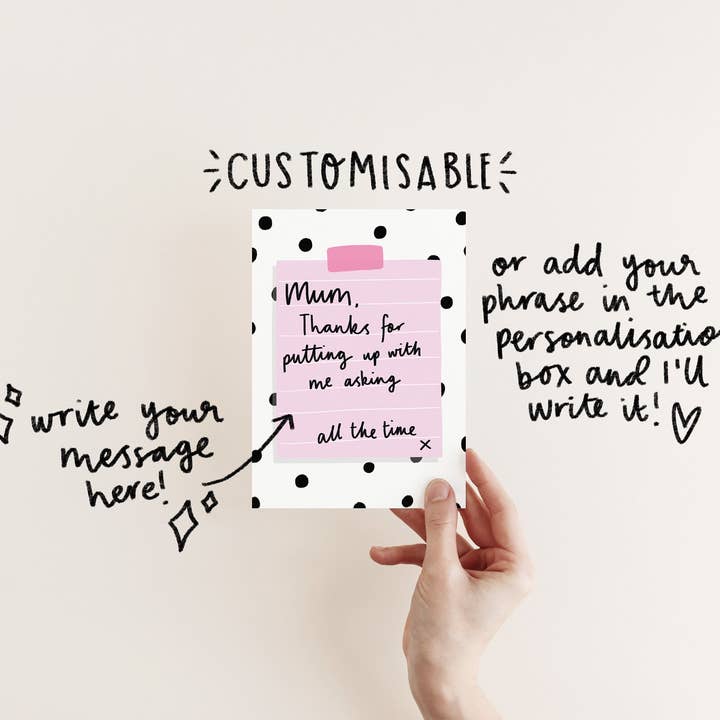 CUSTOMISABLE
Mum,
Thanks for
putting up with
me asking
all the time
x
write your
message
here!
or add your
phrase in the
personalisatio
box and I'll
write it!